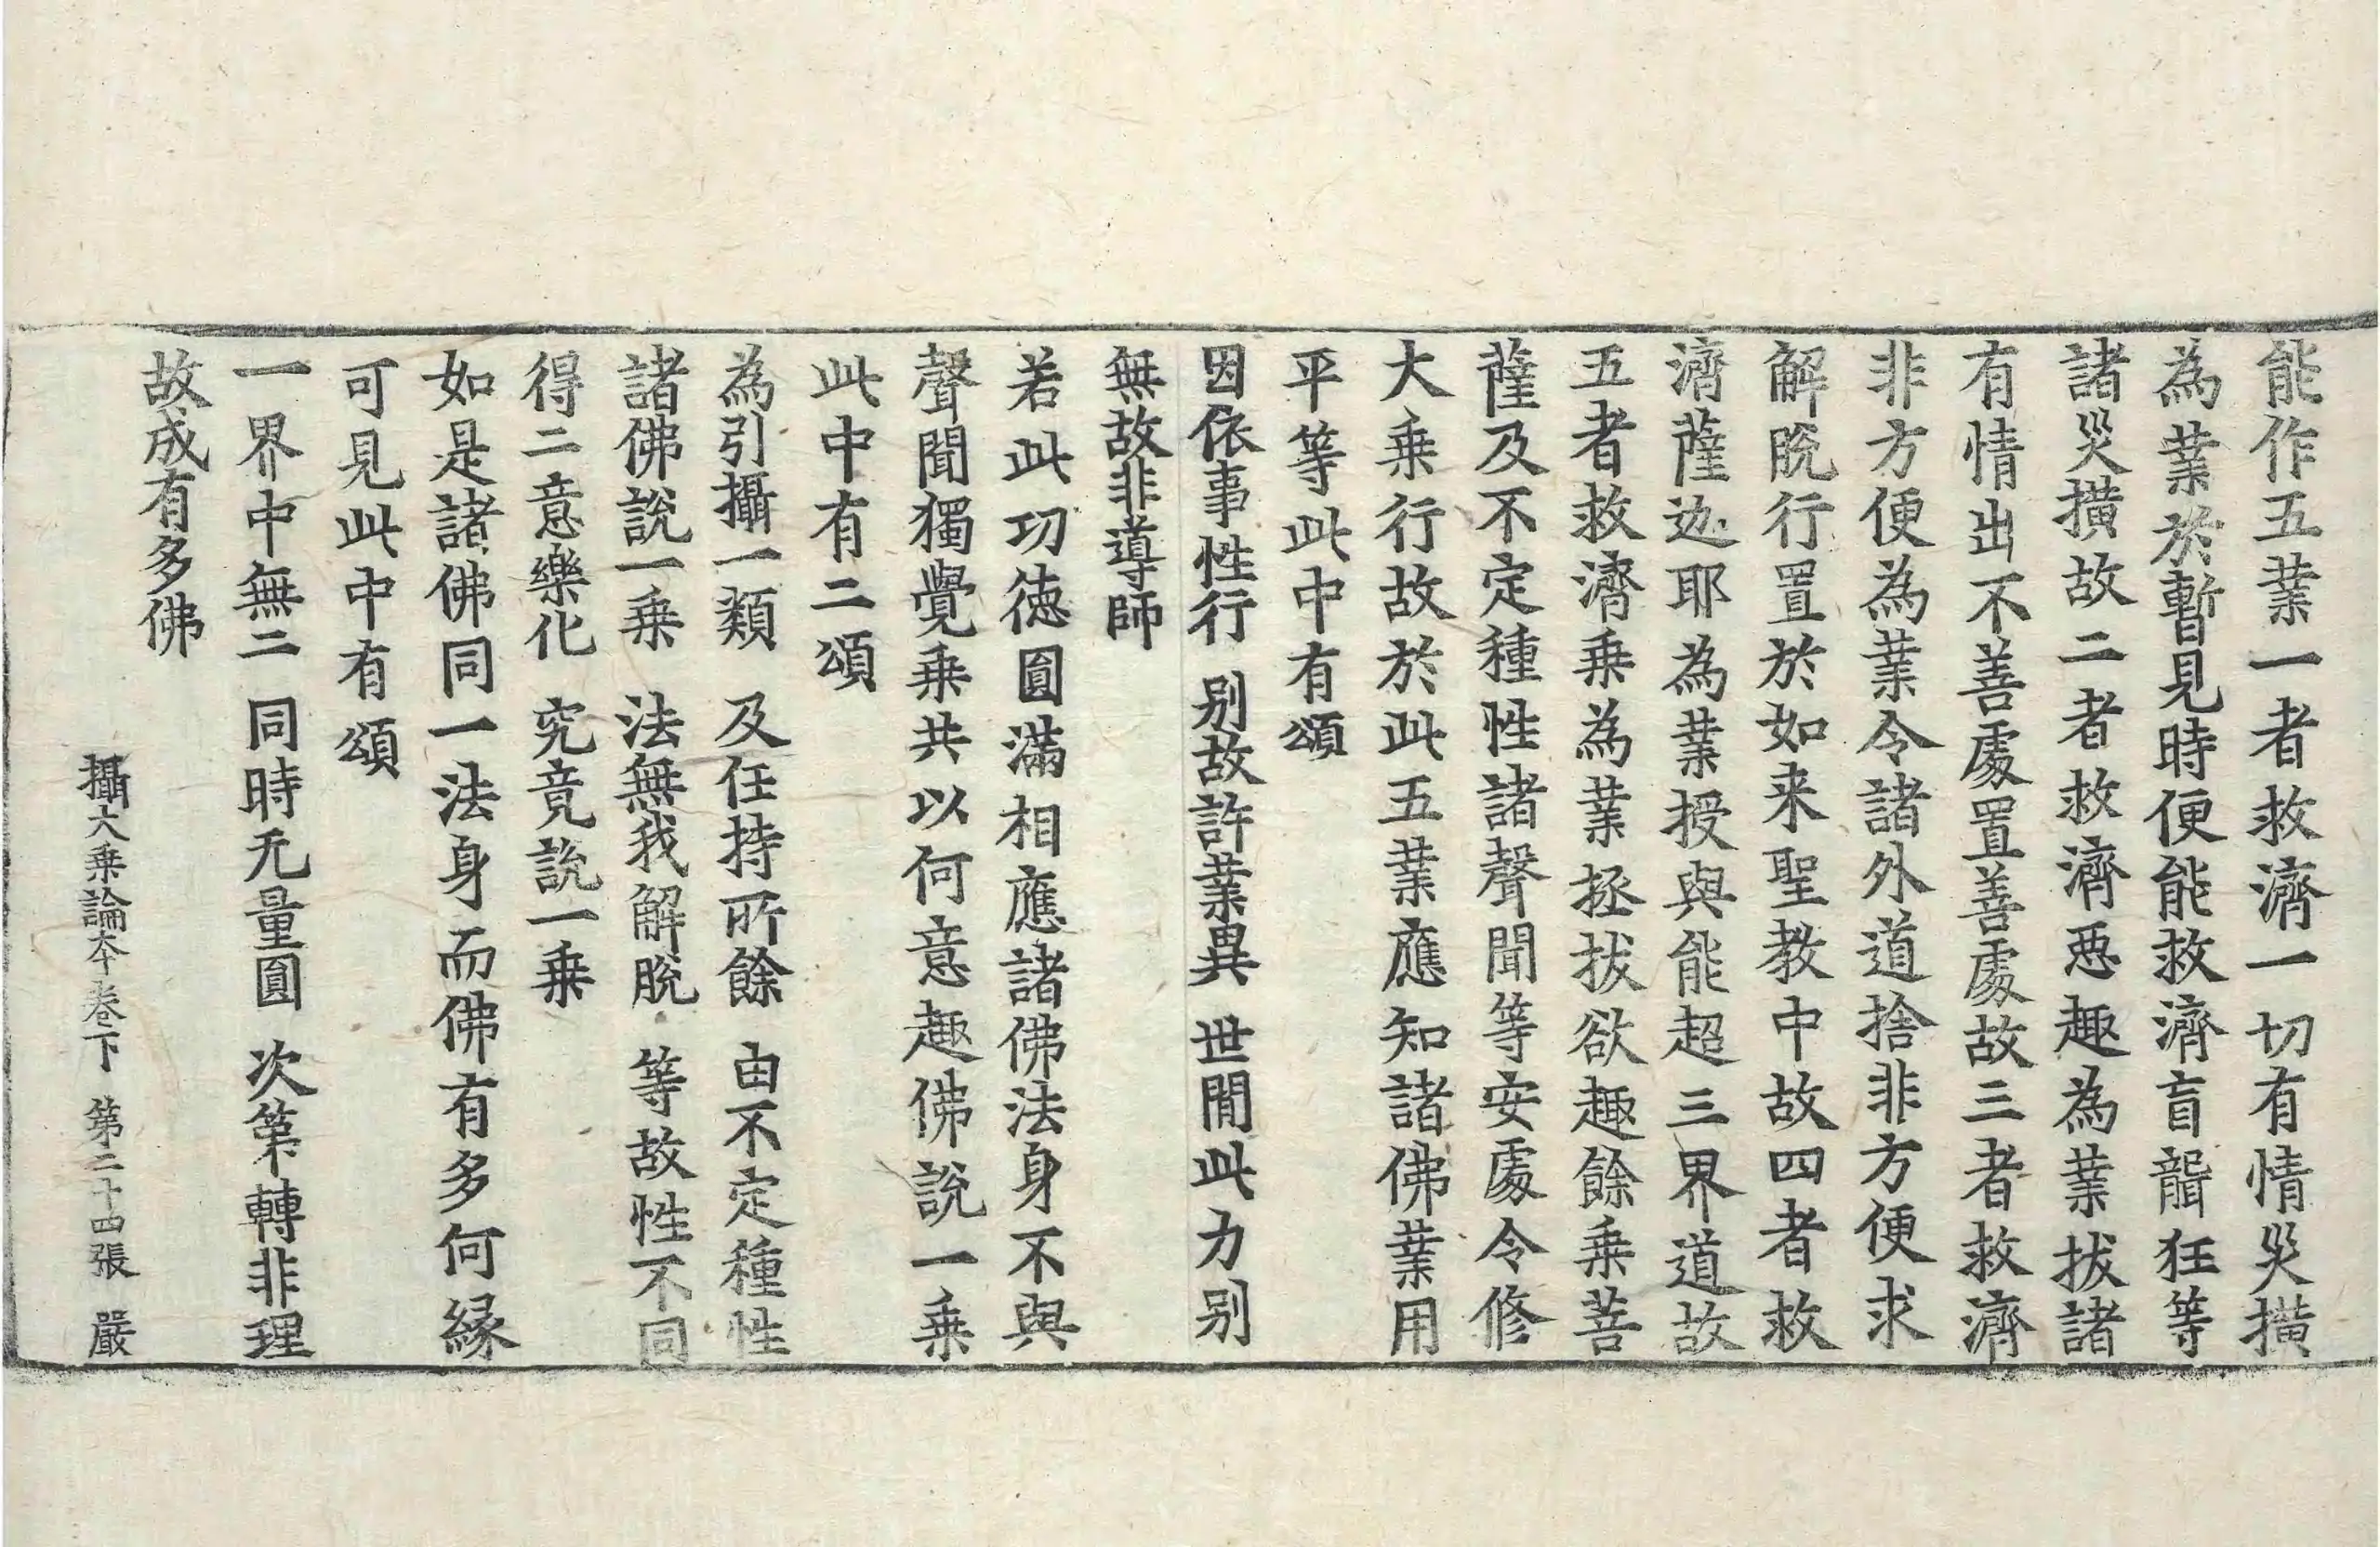 能作五業一者救濟一切有情災撗
為業於暫見時便能救濟盲聾狂等
諸災撗故二者救濟惡趣為業拔諸
有情出不善處置善處故三者救濟
非方便為業令諸外道捨非方便求
解脫行置於如来聖教中故四者救
濟薩迦耶為業授與能超三界道故
五者救濟乗為業拯拔欲趣餘乗菩
薩及不定種性諸聲聞等安處令修
大乗行故於此五業應知諸佛業用
平等此中有頌
因依事性行 别故許業異 世閒此力别
無故非導師
若此功德圓滿相應諸佛法身不與
聲聞獨覺乗共以何意趣佛說一乗
此中有二頌
為引攝一類 及任持所餘 由不定種性
諸佛說一乗 法無我解脫 等故性不同
得二意樂化 究竟說一乗
如是諸佛同一法身而佛有多何縁
可見此中有頌
一界中無二 同時无量圓 次第轉非理
故成有多佛
攝大乗論本卷下 第二十四張 嚴